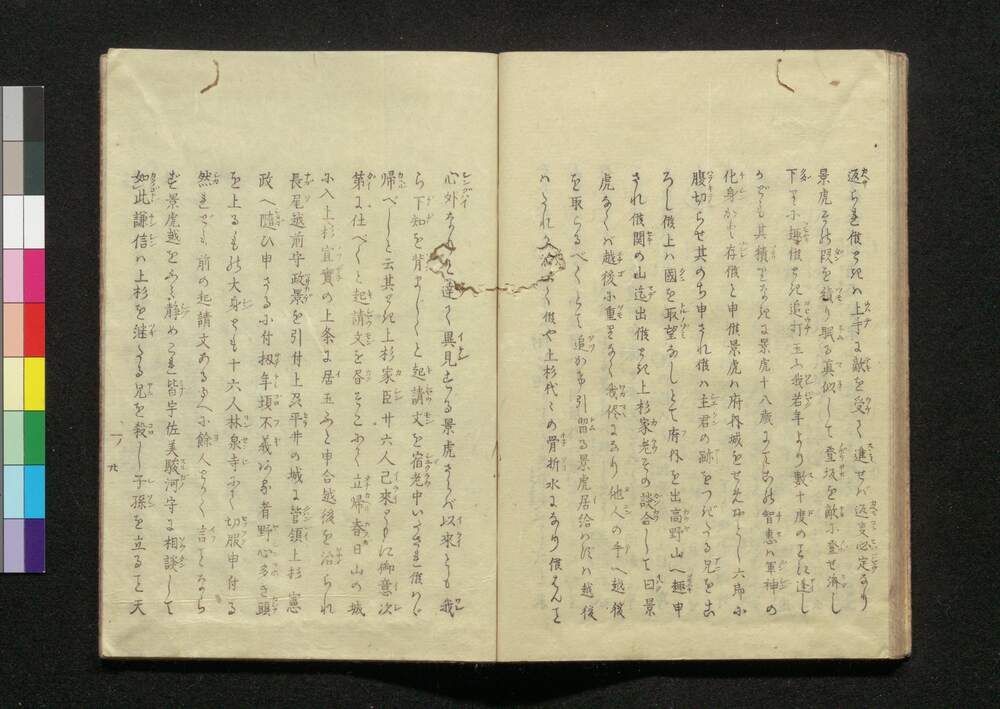 返られ候時ハ上手に敵を受て進せバ返事必定なり
景虎其段を積り眠る真似して登坂を敵に登せ済し
下りに趣候時追打玉ふ我若年より数十度の事に逢し
かども其積りなきに景虎十八歳にて此智恵ハ軍神の
化身かと存候と申候景虎ハ府内城をせめおとし六郎に
腹切らせ其のち申され候ハ主君の跡をつぎたる兄を亡
ろし候上ハ國を取望なしとて府内を出高野山へ趣申
され候関の山迄出候時上杉家老その談合して曰景
虎なくバ越後に重りなく我侭になり他人の手へ越後
を取らるべくとて追かけ引留る景虎居給はずハ越後
ハみだれ又治なく候や上杉代々の骨折水になり候はんこと
心外なりと達て異見する景虎さらバ以来とも我
ら下知を背まじくと起請文を宿老中いたされ候はゞ
帰べしと云其時上杉家臣廿六人己来ともに御意次
第に仕べくと起請文を各そこにて立帰春日山の城
に入上杉宜實の上条に居玉ふと申合越後を治られ
長尾越前守政景を引付上及平井の城に菅領上杉憲
政へ随ひ申さるに付扨年頃不義ある者野心多き頭
を上るもの大身とも十六人林泉寺にて切服申付る
然れども前の起請文あるゆへに餘人とかく言ことならず
ず景虎越をふみ静めこれ皆宇佐美駿河守に相談して
如此謙信ハ上杉を継たる兄を殺し子孫を立ること天
一ノ九